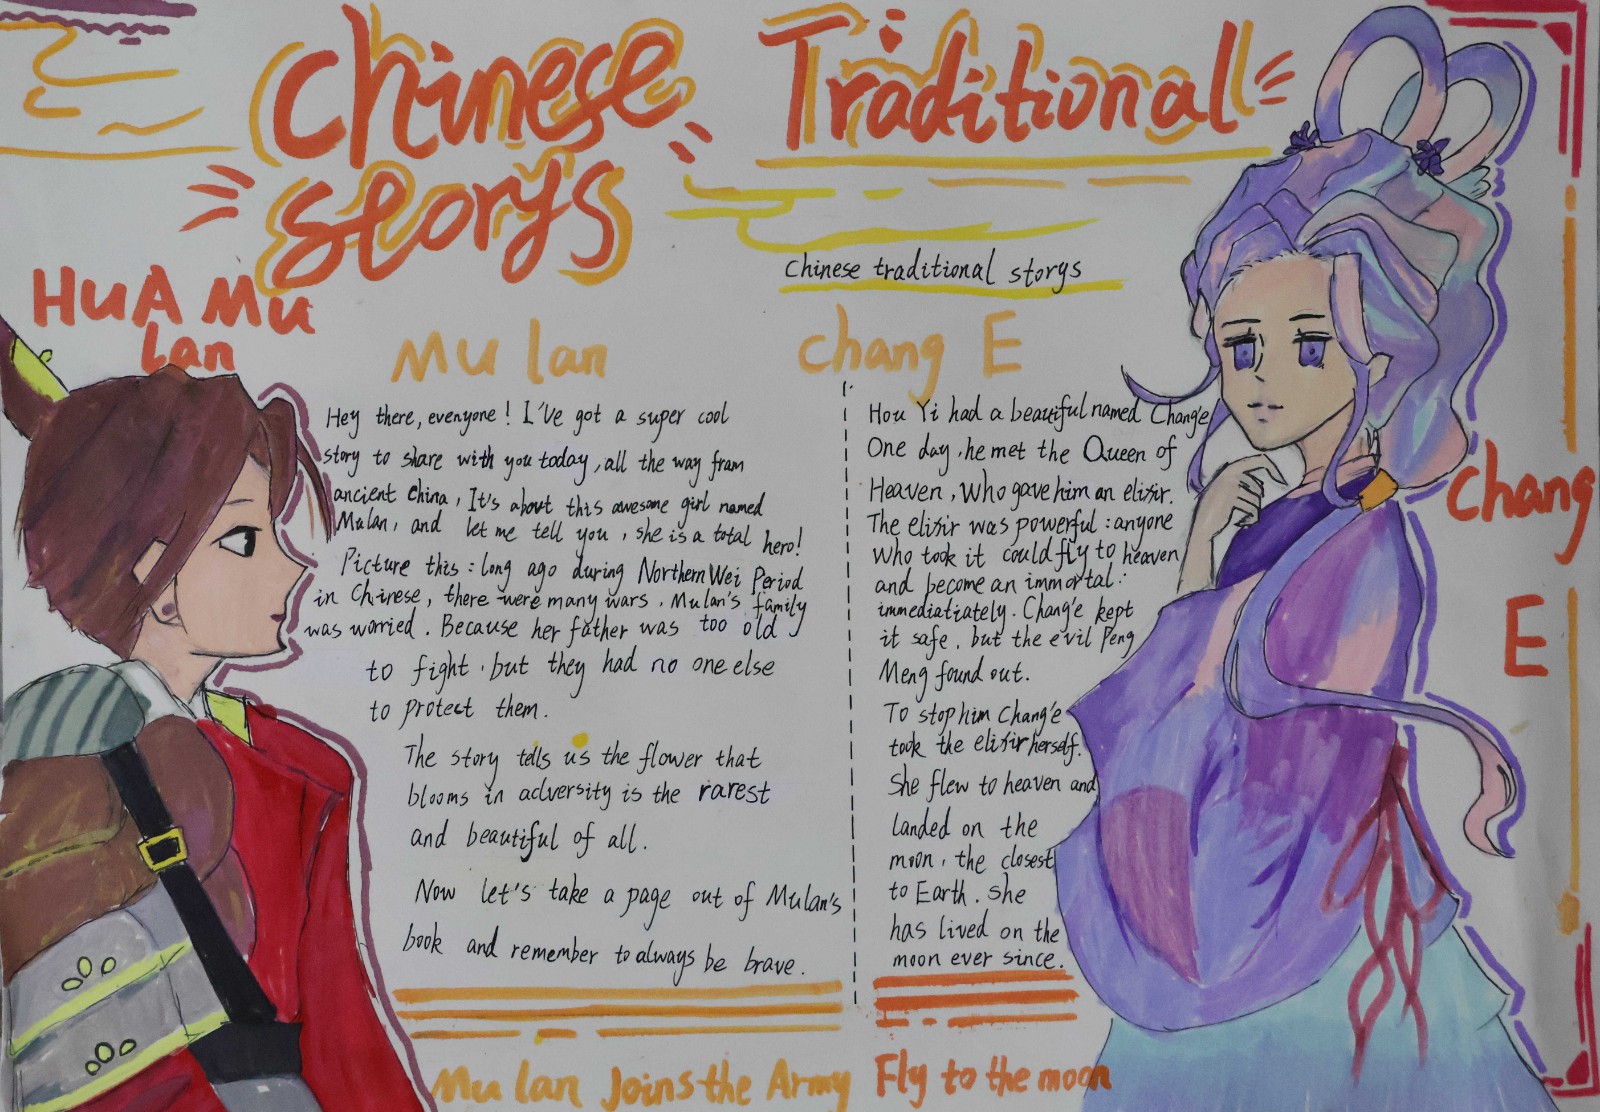 Chinese Traditional
storys
Chinese traditional storys
HuA Mu
lan
Mu lan
Hey there, everyone! I've got a super cool
story to share with you today, all the way fram
ancient China, It's about this awesome girl named
Mulan, and let me tell you, she is a total hero!
Picture this: long ago during Northern Wei Period
in Chinese, there were many wars. Mulan's family
was worried. Because her father was too old
to fight. but they had no one else
to protect them.
The story tells us the flower that
blooms in adversity is the rarest
and beautiful of all.
Now let's take a page out of Mulan's
book and remember to always be brave.
Mu lan Joins the Army
chang E
Hou Yi had a beautiful named Chang'e
One day, he met the Queen of
Heaven, Who gave him an elixir.
The elixir was powerful: anyone
who took it could fly to heaven
and become an immortal:
immediatiately. Chang'e kept
it safe. but the evil Peng
Meng found out.
To stop him Chang'e
took the elixir herself.
She flew to heaven and
landed on the
moon, the closest
to Earth. She
has lived on the
moon ever since.
Fly to the moon
Chang
E